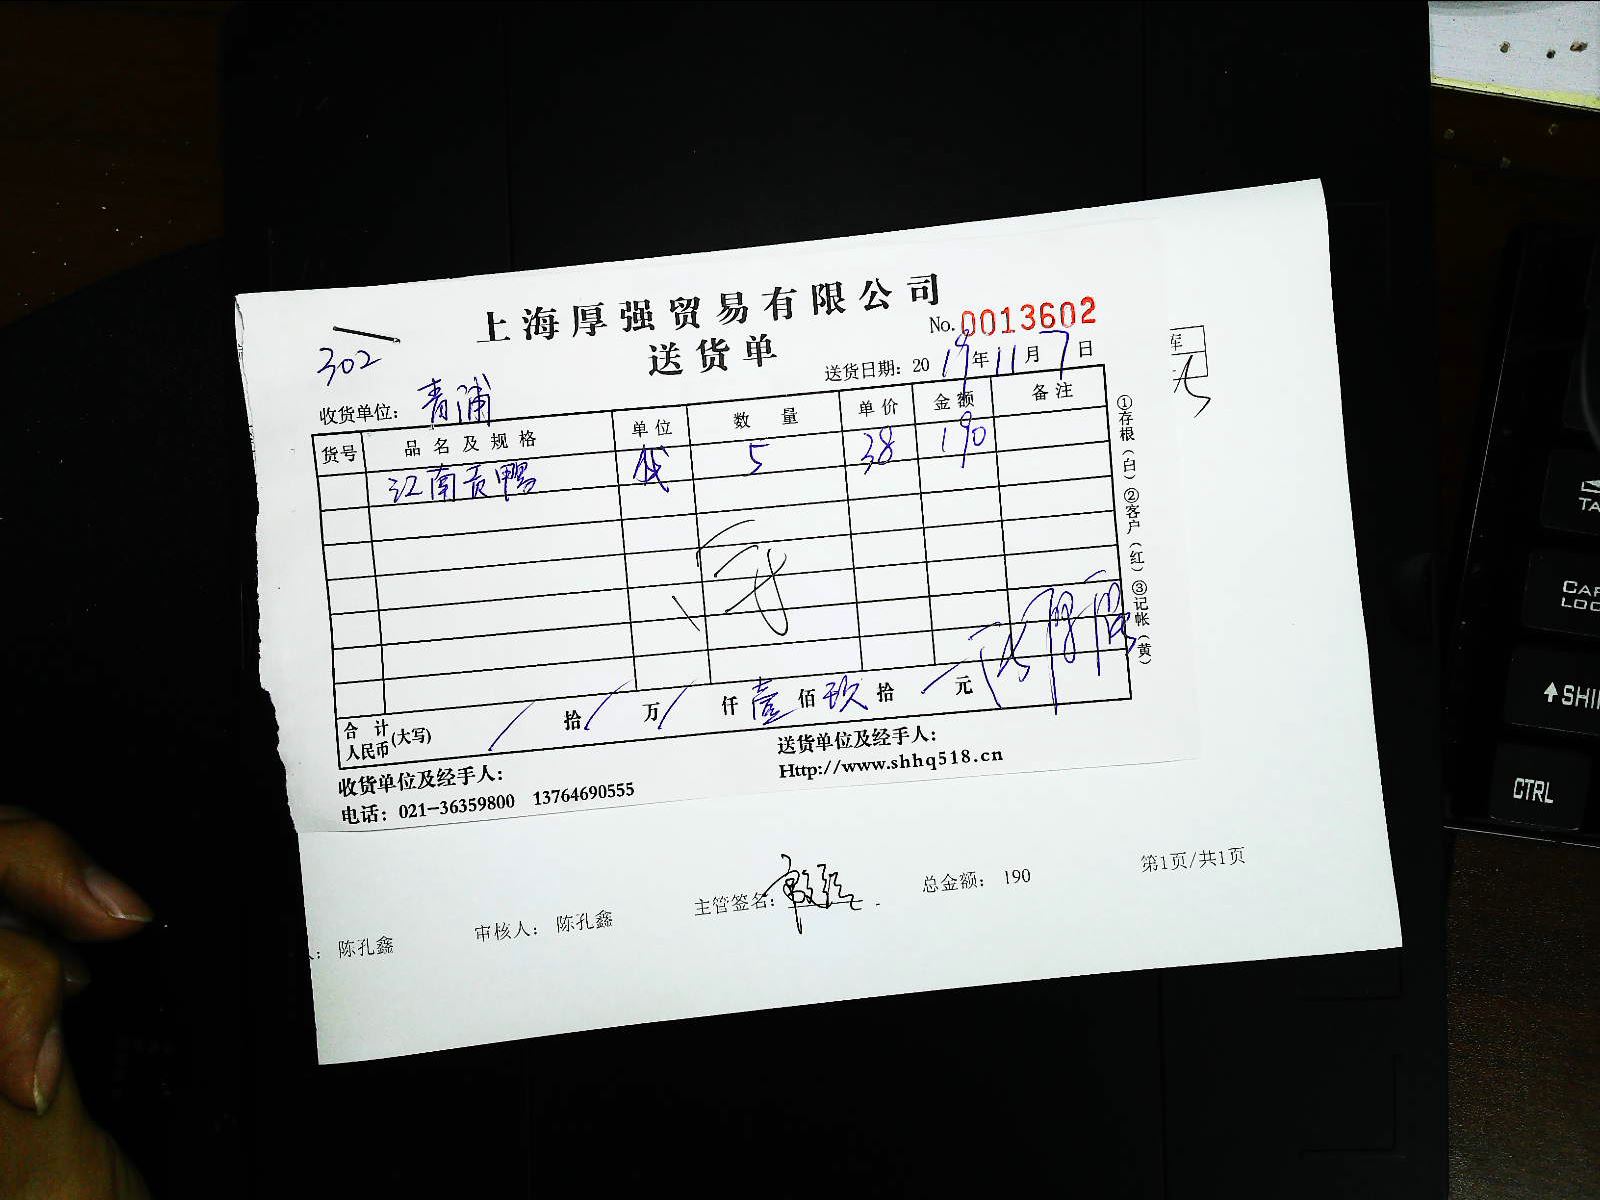 上海厚强贸易有限公司
No. 0013602
302
送货单
送货日期：2019年11月7日
收货单位：青浦
货号 品名及规格 单位 数量 单价 金额 备注
江南贡鸭 5 38 190
①存根（白）②客户（红）③记帐（黄）
合计人民币(大写) / 拾 / 万 / 仟 壹 佰 玖 拾 元
收货单位及经手人：
送货单位及经手人：
电话：021-36359800 13764690555
Http://www.shhq518.cn
陈孔鑫
审核人： 陈孔鑫
主管签名：
总金额： 190
第1页/共1页
TA
CAP
LOC
SHI
CTRL